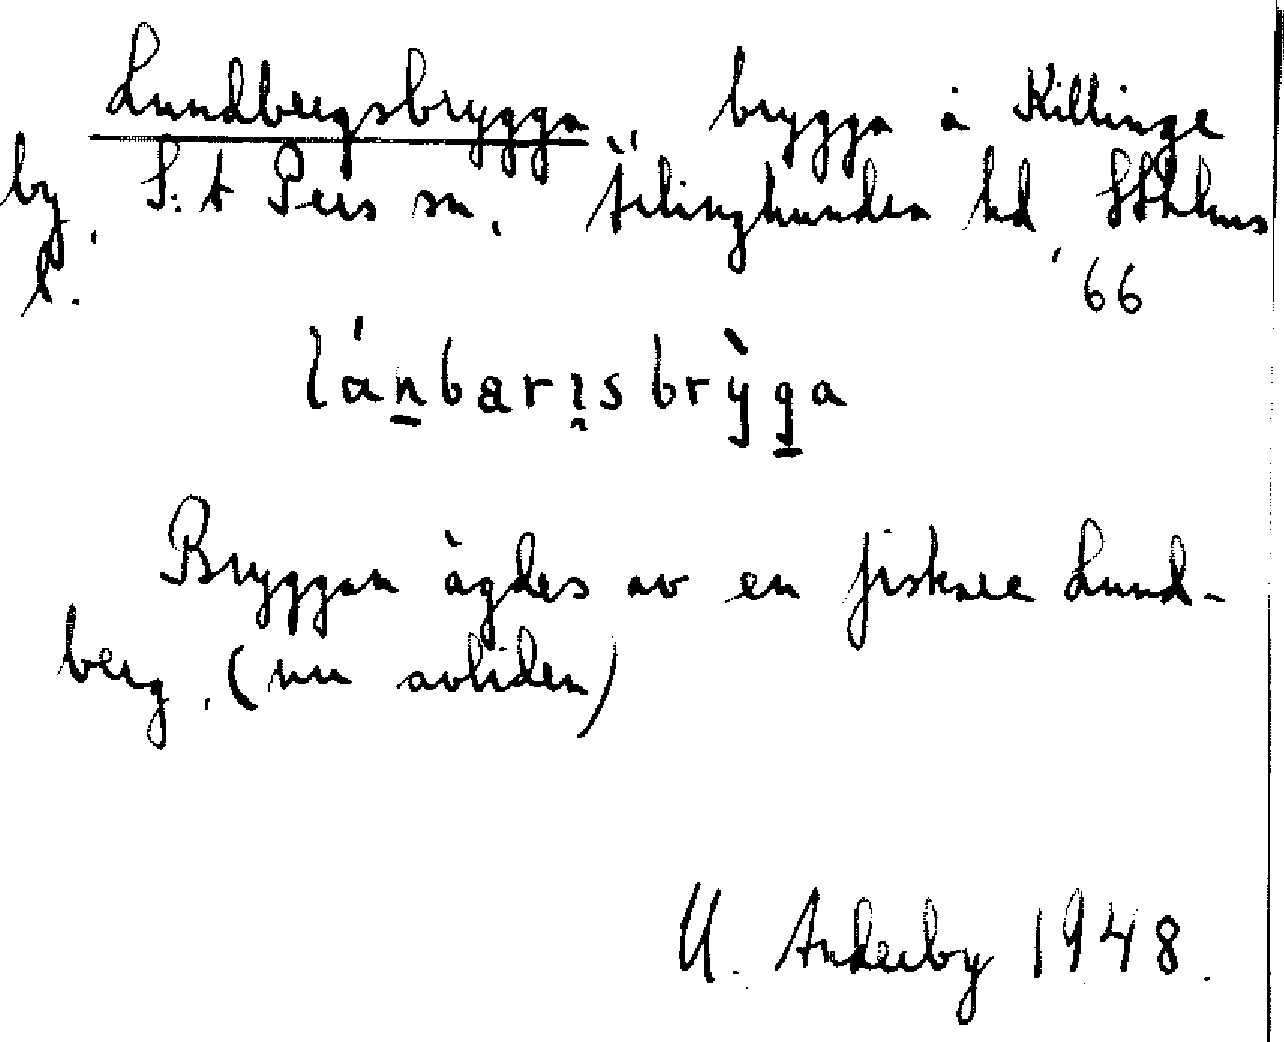 Lundbergsbrygga, brygga å Killinge
by, S:t Pers sn, Ärlinghundra hd, Sthlms
l. 66
lánbarisbrỳga
Bryggan ägdes av en fiskare Lund-
berg, (nu avliden)
U. Anderby 1948.